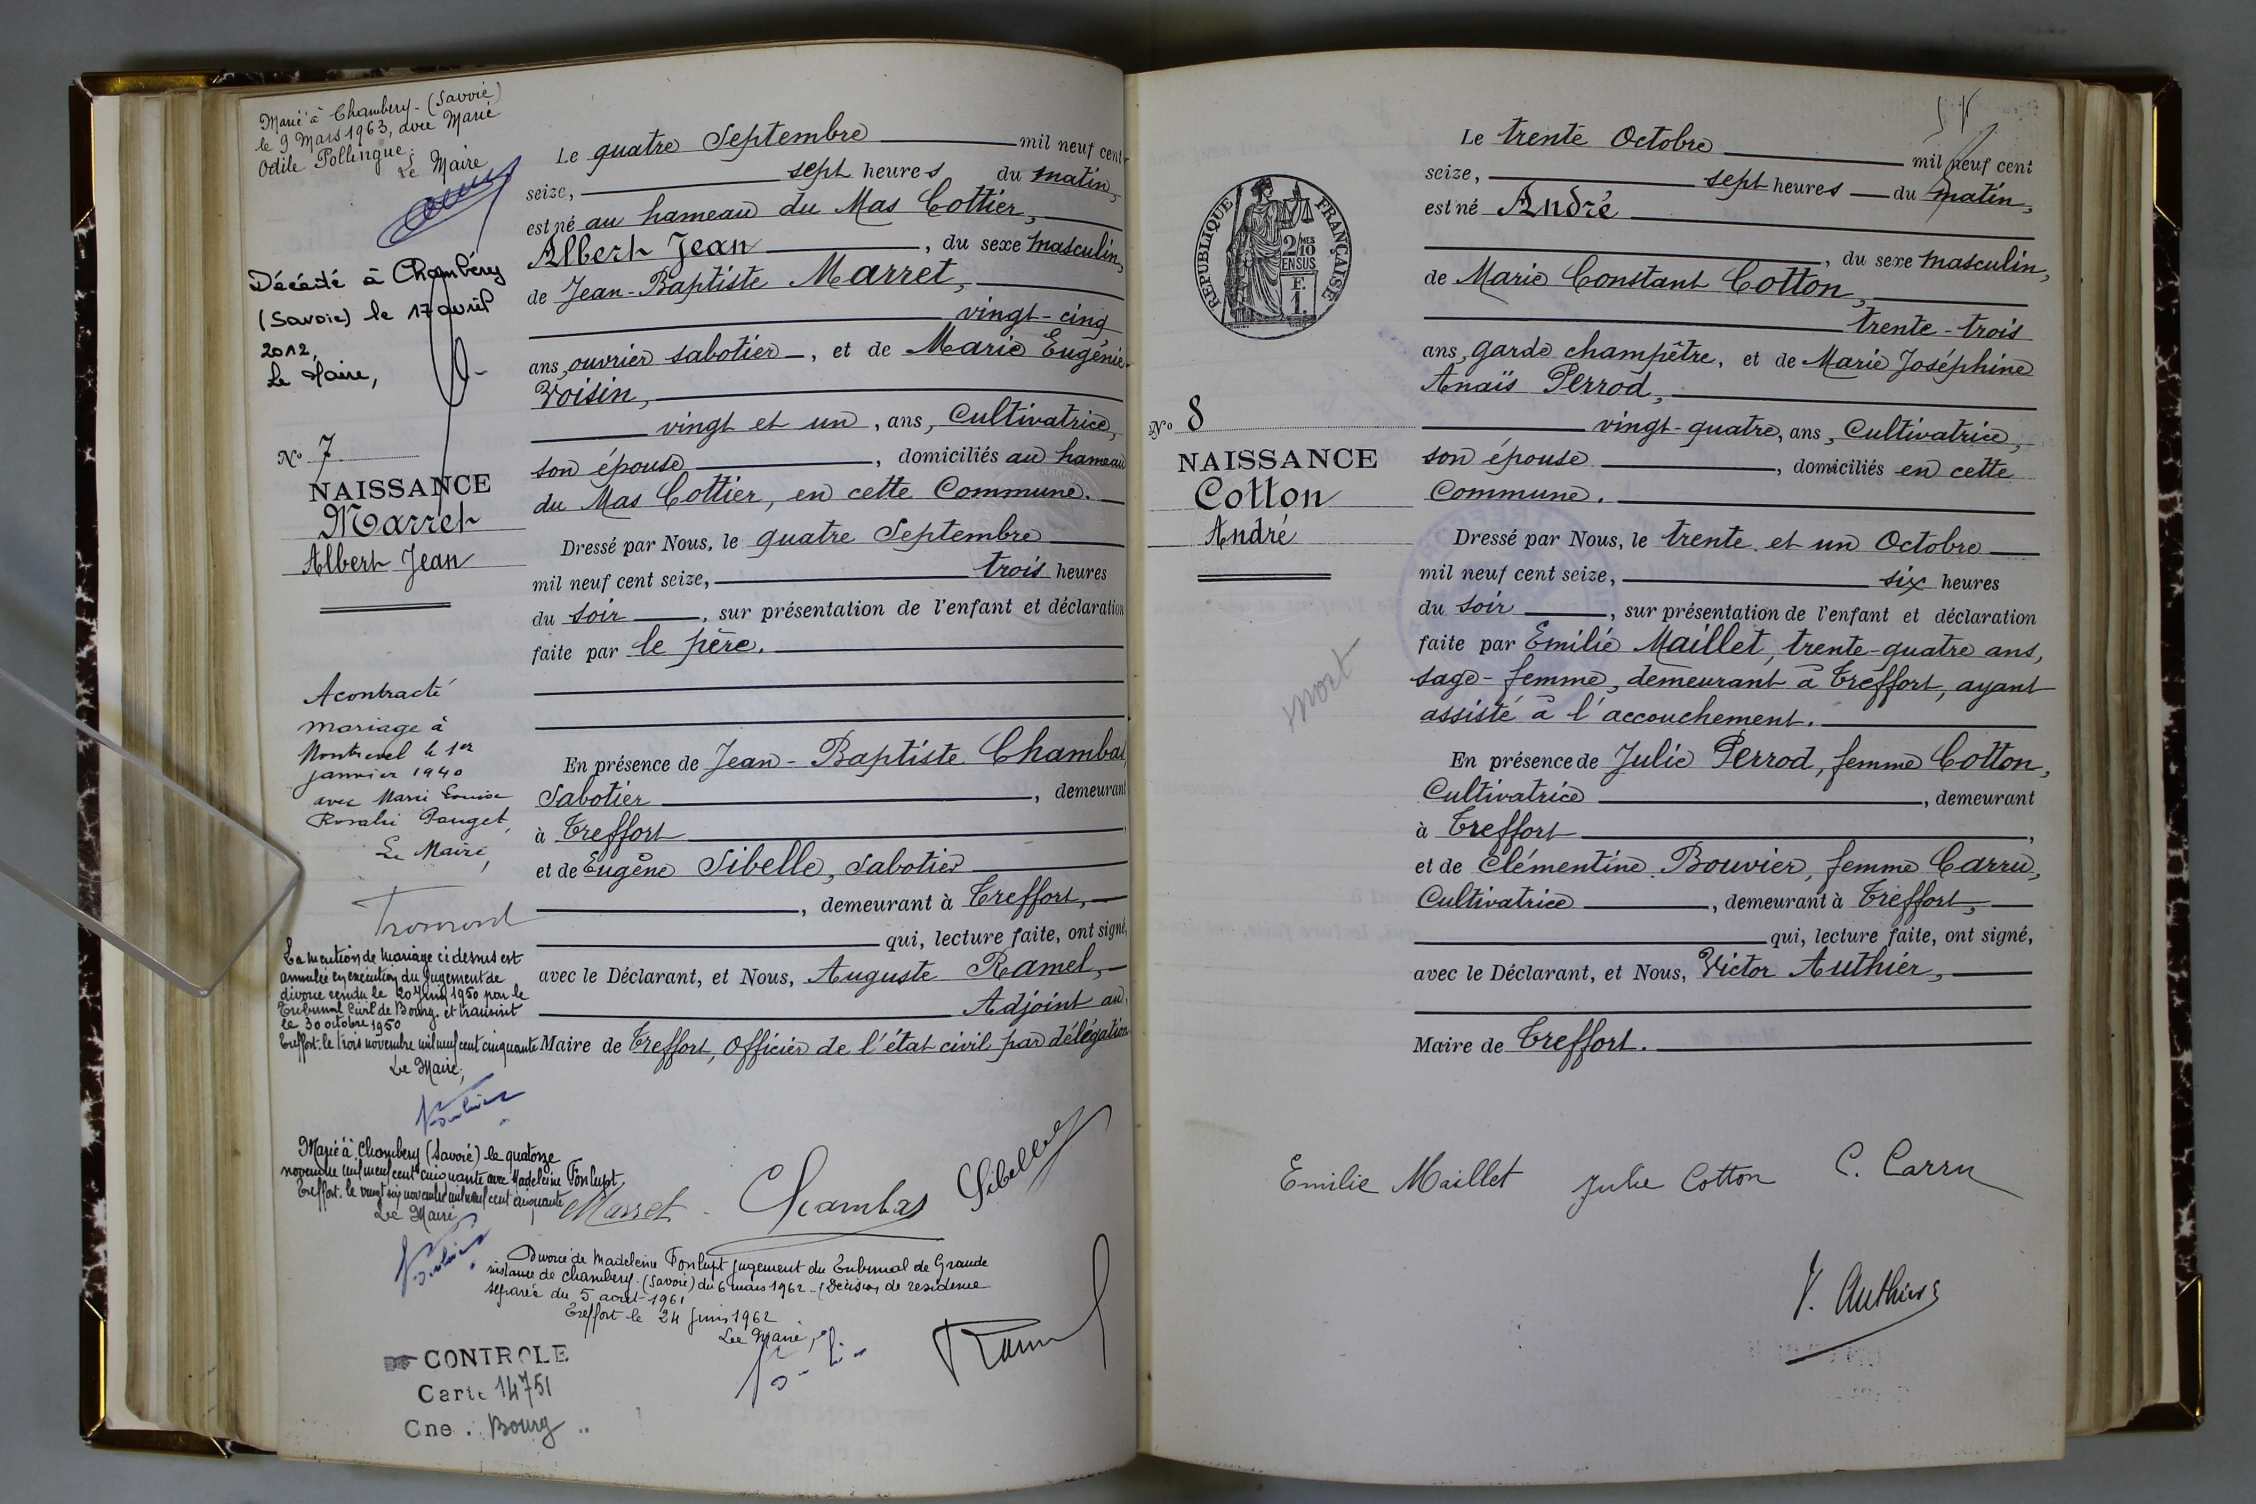 Marié à Chambery - (Savoie)
le 9 Mars 1963, avec Marie
Odile Pollingue.
Le Maire
Décédé à Chambéry
(Savoie) le 17 avril
2012,
Le Maire,
No 7
NAISSANCE
Marret
Albert Jean
A contracté
mariage à
Montrevel le 1er
janvier 1940
avec Marie Louise
Rosalie Pauget,
Le Maire,
La mention de mariage ci dessus est
annulée en exécution du jugement de
divorce rendu le 20 Juin 1950 par le
Tribunal Civil de Bourg et transcrit
le 30 octobre 1950
Treffort le trois novembre mil neuf cent cinquante
Le Maire,
Marié à Chambery (Savoie) le quatorze
novembre mil neuf cent cinquante avec Madeleine Fonlupt,
Treffort, le vingt six novembre mil neuf cent cinquante
Le Maire
Le quatre Septembre mil neuf cent
seize, sept heures du matin,
est né au hameau du Mas Cottier,
Albert Jean, du sexe masculin,
de Jean-Baptiste Marret,
vingt-cinq
ans, ouvrier sabotier, et de Marie Eugénie
Voisin,
vingt et un, ans, Cultivatrice,
son épouse, domiciliés au hameau
du Mas Cottier, en cette Commune.
Dressé par Nous, le quatre Septembre
mil neuf cent seize, trois heures
du soir, sur présentation de l'enfant et déclaration
faite par le père.
En présence de Jean-Baptiste Chambas
Sabotier, demeurant
à Treffort
et de Eugène Sibelle, Sabotier
, demeurant à Treffort,
qui, lecture faite, ont signé,
avec le Déclarant, et Nous, Auguste Ramel,
Adjoint au
Maire de Treffort, Officier de l'état civil par délégation
Marret Chambas Sibelle
Divorcé de Madeleine Fonlupt jugement du Tribunal de Grande
instance de Chambery (Savoie) du 6 mars 1962 - (Décision de residence
séparée du 5 aout 1961
Treffort le 24 Juin 1962
Le Maire,
Ramel
CONTROLE
Carte 14751
Cne. Bourg
REPUBLIQUE FRANÇAISE
2/MES
10
EN SUS
F.
1.
No 8
NAISSANCE
Cotton
André
mort
Le trente Octobre mil neuf cent
seize, sept heures du matin,
est né André
, du sexe masculin,
de Marie Constant Cotton,
trente-trois
ans, garde champêtre, et de Marie Joséphine
Anaïs Perrod,
vingt-quatre, ans, Cultivatrice,
son épouse, domiciliés en cette
Commune.
Dressé par Nous, le trente et un Octobre
mil neuf cent seize, six heures
du soir, sur présentation de l'enfant et déclaration
faite par Emilie Maillet, trente-quatre ans,
sage-femme, demeurant à Treffort, ayant
assisté à l'accouchement.
En présence de Julie Perrod, femme Cotton,
Cultivatrice, demeurant
à Treffort,
et de Clémentine Bouvier, femme Carru,
Cultivatrice, demeurant à Treffort,
qui, lecture faite, ont signé,
avec le Déclarant, et Nous, Victor Authier,
Maire de Treffort.
Emilie Maillet Julie Cotton C. Carru
V. Authier